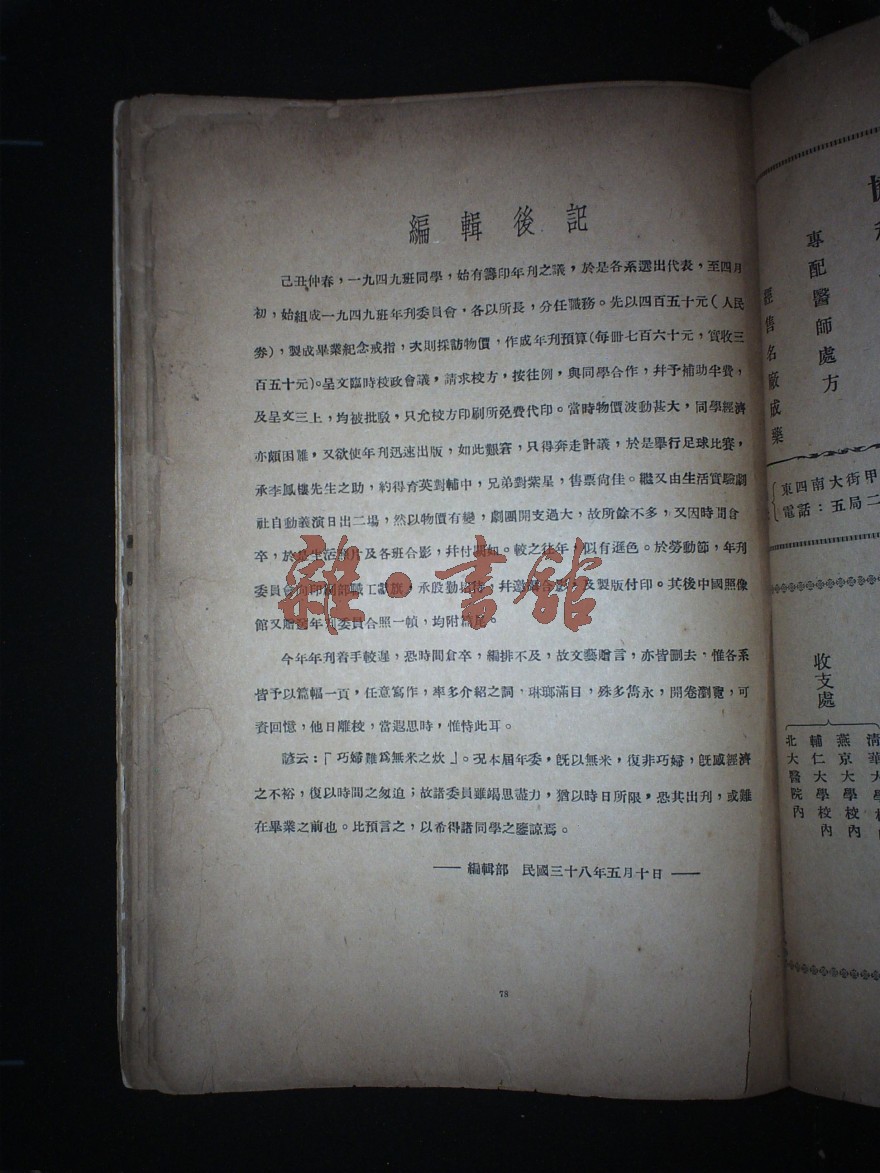 編輯後記
己丑仲春，一九四九班同學，始有籌印年刊之議，於是各系選出代表，至四月
初，始組成一九四九班年刊委員會，各以所長，分任職務。先以四百五十元（人民
券），製成畢業紀念戒指，次則採訪物價，作成年刊預算（每冊七百六十元，實收三
百五十元）。呈文臨時校政會議，請求校方，按往例，與同學合作，幷予補助半費，
及呈文三上，均被批駁，只允校方印刷所免費代印。當時物價波動甚大，同學經濟
亦頗困難，又欲使年刊迅速出版，如此艱窘，只得奔走計議，於是舉行足球比賽，
承李鳳樓先生之助，約得育英對輔中，兄弟對紫星，售票尙佳。繼又由生活實驗劇
社自動義演日出二場，然以物價有變，劇團開支過大，故所餘不多，又因時間倉
卒，於是生活照片及各班合影，幷付闕如。較之往年，似有遜色。於勞動節，年刊
委員會向印刷部職工獻旗，承殷勤招待，幷邀請合影，及製版付印。其後中國照像
館又贈閤年刊委員合照一幀，均附篇尾。
今年年刊着手較遲，恐時間倉卒，編排不及，故文藝贈言，亦皆刪去，惟各系
皆予以篇幅一頁，任意寫作，率多介紹之詞，琳瑯滿目，殊多雋永，開卷瀏覽，可
資回憶，他日離校，當遐思時，惟恃此耳。
諺云：「巧婦難爲無米之炊」。况本屆年委，旣以無米，復非巧婦，旣感經濟
之不裕，復以時間之匆迫；故諸委員雖竭思盡力，猶以時日所限，恐其出刊，或難
在畢業之前也。比預言之，以希得諸同學之鑒諒焉。
—— 編輯部　民國三十八年五月十日 ——
78
雜·書館
專配醫師處方
經售名廠成藥
東四南大街甲
電話：五局二
收支處
清華大學校
燕京大學校內
輔仁大學校內
北大醫院內